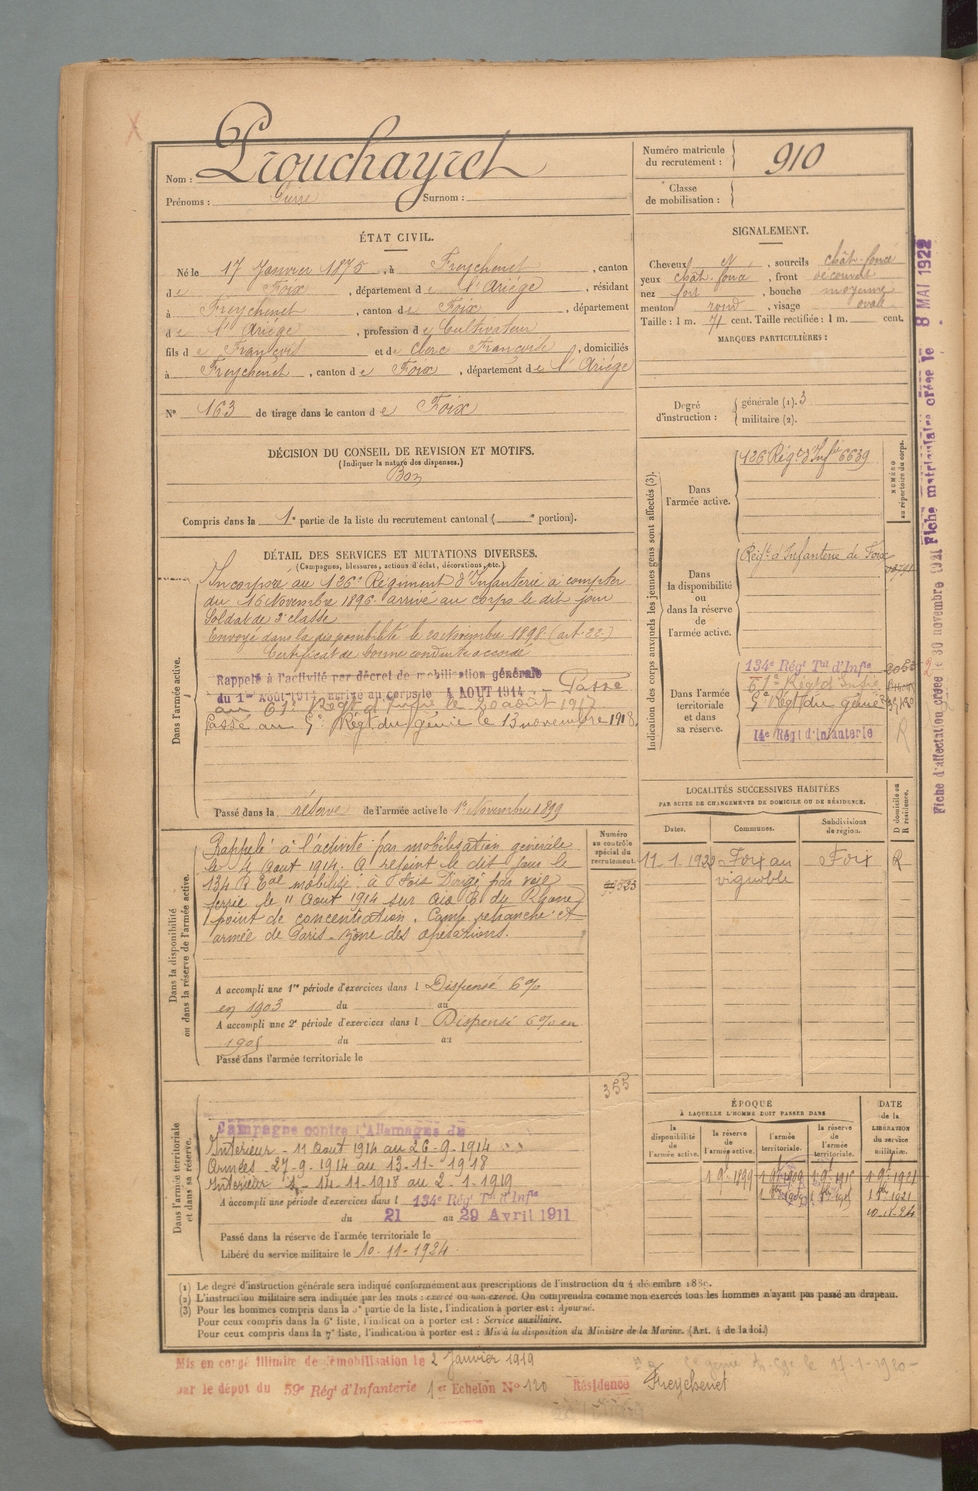 Nom : Prouchayret
Prénoms : Pierre Surnom :
Numéro matricule du recrutement : 910
Classe de mobilisation :
ÉTAT CIVIL.
Né le 17 Janvier 1875, à Freychenet, canton
de Foix, département de l'Ariège, résidant
à Freychenet, canton de Foix, département
de l'Ariège, profession de Cultivateur
fils de François et de Clerc Françoise, domiciliés
à Freychenet, canton de Foix, département de l'Ariège
N° 163 de tirage dans le canton de Foix
SIGNALEMENT.
Cheveux et, sourcils chât. foncé
yeux chât. foncé, front découvert
nez fort, bouche moyenne
menton rond, visage ovale
Taille : 1 m. 71 cent. Taille rectifiée : 1 m. cent.
MARQUES PARTICULIÈRES :
Degré d'instruction : générale (1). 3
militaire (2).
DÉCISION DU CONSEIL DE REVISION ET MOTIFS.
(Indiquer la nature des dispenses.)
Bon
Compris dans la 1e partie de la liste du recrutement cantonal ( e portion).
DÉTAIL DES SERVICES ET MUTATIONS DIVERSES.
(Campagnes, blessures, actions d'éclat, décorations, etc.)
Dans l'armée active.
Incorporé au 126e Régiment d'Infanterie à compter
du 16 Novembre 1896. arrivé au corps le dit jour
Soldat de 2e classe
Envoyé dans la disponibilité le 20 Novembre 1898 (art. 22)
Certificat de bonne conduite accordé
Rappelé à l'activité par décret de mobilisation générale
du 1er Août 1914, arrivé au corps le 4 AOUT 1914 - Passé
au 61e Régt d'Infie le 20 août 1917
Passé au 5e Régt du génie le 13 novembre 1918
Passé dans la réserve de l'armée active le 1er Novembre 1899
Indication des corps auxquels les jeunes gens sont affectés (3).
NUMÉRO au répertoire du corps.
Dans l'armée active.
126 Régt d'Infie 6639
Dans la disponibilité ou dans la réserve de l'armée active.
Régt d'Infanterie de Foix
Dans l'armée territoriale et dans sa réserve.
134e Régt Tal d'Infie
61e Régt d'Infie
5e Régt du génie
14e Régt d'Infanterie
R
LOCALITÉS SUCCESSIVES HABITÉES
PAR SUITE DE CHANGEMENTS DE DOMICILE OU DE RÉSIDENCE.
Dates. Communes. Subdivisions de région. D domicile ou R résidence.
11.1.1920 Foix au vignoble Foix R
Dans la disponibilité ou dans la réserve de l'armée active.
Numéro au contrôle spécial du recrutement.
Rappelé à l'activité par mobilisation générale
le 4 Aout 1914. A rejoint le dit jour le
134 R Tal mobilisé à Foix Dirigé par voie
ferrée le 11 Aout 1914 sur
point de concentration. Camp retranché et
armée de Paris - Zone des opérations.
A accompli une 1re période d'exercices dans l Dispensé 6%
en 1903 du au
A accompli une 2e période d'exercices dans l Dispensé 6% en
1905 du au
Passé dans l'armée territoriale le
355
Dans l'armée territoriale et dans sa réserve.
Campagne contre l'Allemagne du
Intérieur - 11 Aout 1914 au 26-9-1914
Armées - 27-9-1914 au 13-11-1918
Intérieur - 14-11-1918 au 2-1-1919
A accompli une période d'exercices dans l 134e Régt Tal d'Infie
du 21 au 29 Avril 1911
Passé dans la réserve de l'armée territoriale le
Libéré du service militaire le 10-11-1924
ÉPOQUE
À LAQUELLE L'HOMME DOIT PASSER DANS
la disponibilité de l'armée active. la réserve de l'armée active. l'armée territoriale. la réserve de l'armée territoriale.
DATE de la LIBÉRATION du service militaire.
10-11-24
(1) Le degré d'instruction générale sera indiqué conformément aux prescriptions de l'instruction du 4 décembre 1889.
(2) L'instruction militaire sera indiquée par les mots : exercé ou non exercé. On comprendra comme non exercés tous les hommes n'ayant pas passé au drapeau.
(3) Pour les hommes compris dans la 5e partie de la liste, l'indication à porter est : Ajourné.
Pour ceux compris dans la 6e liste, l'indication à porter est : Service auxiliaire.
Pour ceux compris dans la 7e liste, l'indication à porter est : Mis à la disposition du Ministre de la Marine. (Art. 4 de la loi.)
Mis en congé illimité de démobilisation le 2 Janvier 1919
par le dépôt du 59e Régt d'Infanterie 1er Echelon N° 120 Résidence Freychenet
Fiche matriculaire créée le 8 MAI 1922
Fiche d'affectation créée le 30 novembre 1921